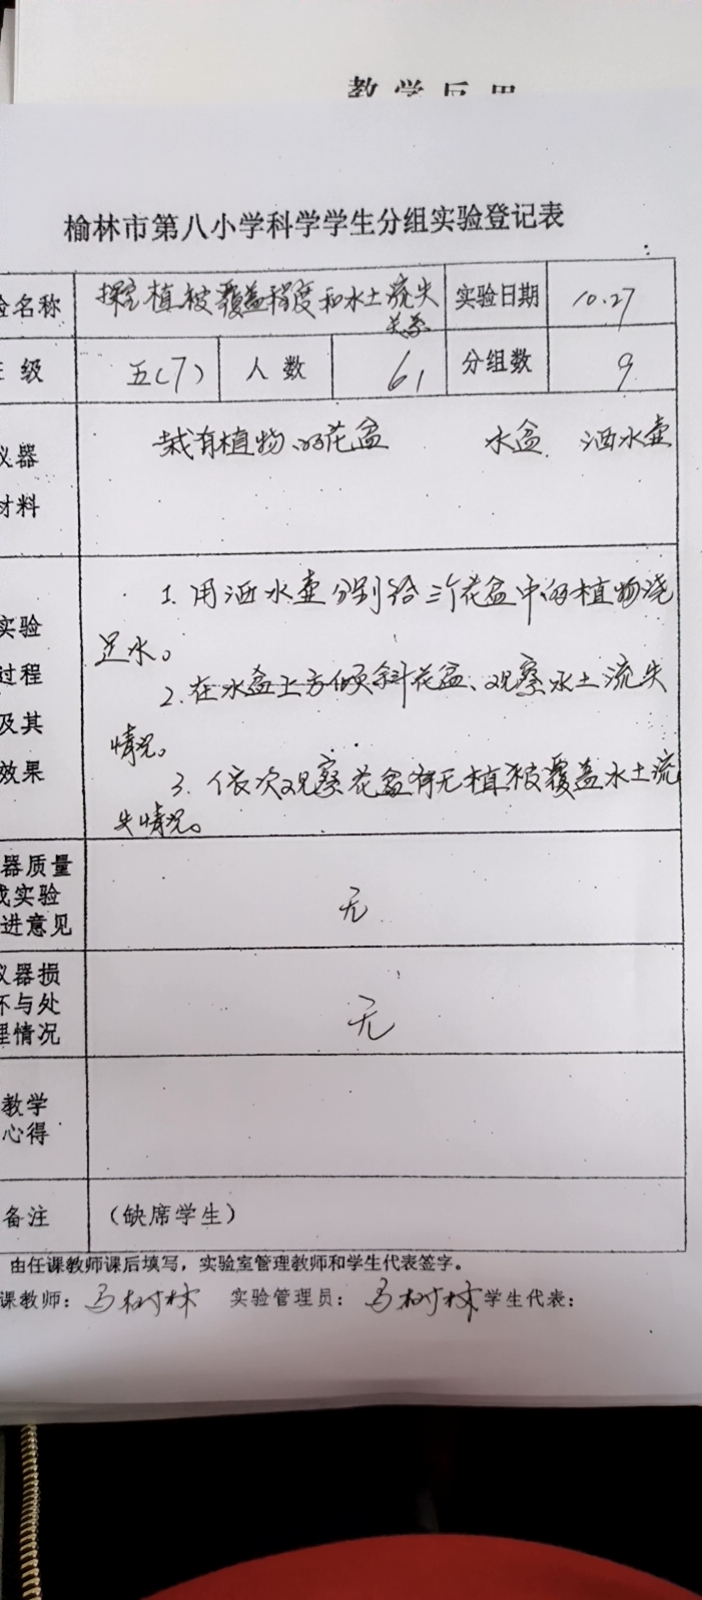 教学反思
榆林市第八小学科学学生分组实验登记表
验名称 探究植被覆盖程度和水土流失关系 实验日期 10.27
班 级 五(7) 人 数 61 分组数 9
仪器 栽有植物的花盆 水盆 洒水壶
材料
实验 1. 用洒水壶分别给三个花盆中的植物浇
过程 足水。
及其 2. 在水盆上方倾斜花盆、观察水土流失
效果 情况。
3. 依次观察花盆有无植被覆盖水土流
失情况。
器质量
或实验 无
进意见
仪器损
坏与处 无
理情况
教学
心得
备注 (缺席学生)
由任课教师课后填写，实验室管理教师和学生代表签字。
课教师: 马树林 实验管理员: 马树林 学生代表: